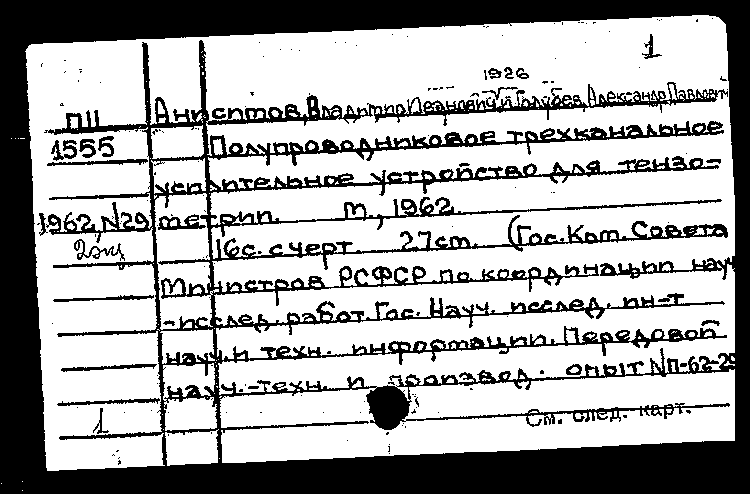 1
1926
П11 Анисимов, Владимир Иванович и Голубев, Александр Павлович
1555 Полупроводниковое трехканальное
усилительное устройство для тензо-
1962 N29 метрии. М., 1962
2экз 16с. с черт. 27см. (Гос. Ком. Совета
Министров РСФСР по координации науч
-исслед. работ. Гос. Науч. исслед. ин-т
науч. и техн. информации. Передовой
науч.-техн. и производ. опыт N П-62-29
1 См. след. карт.